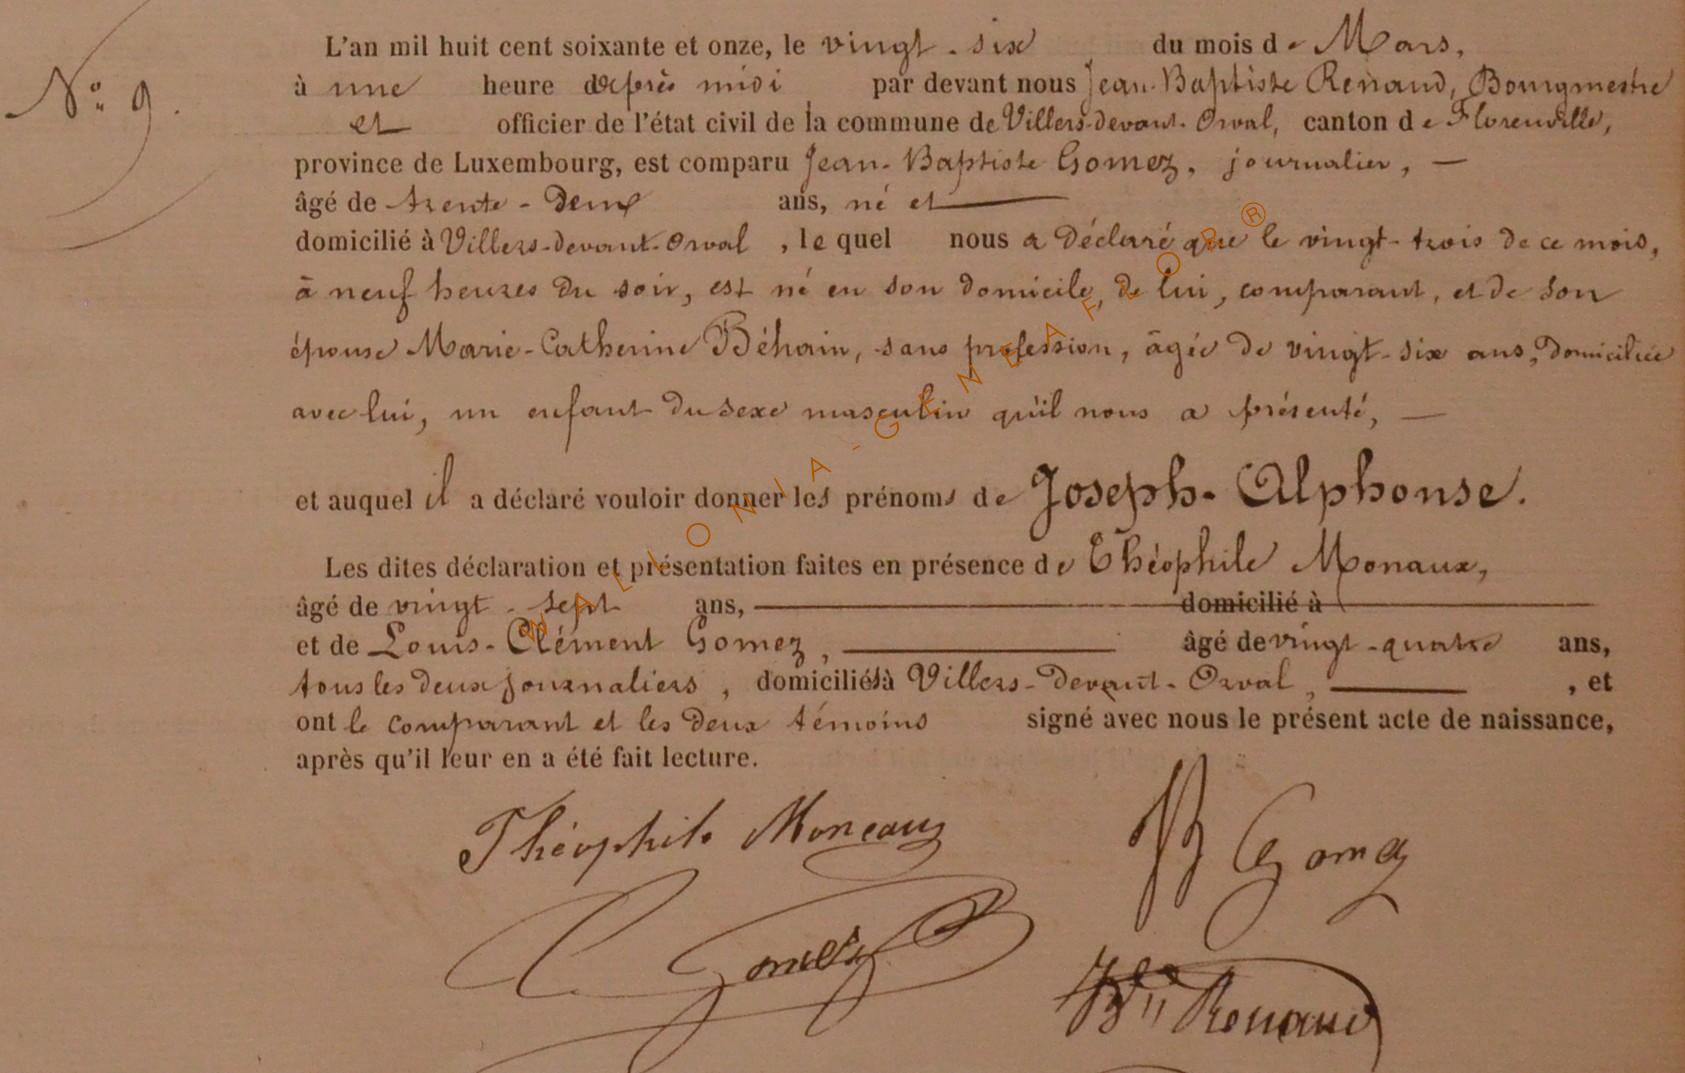 N° 9.
L'an mil huit cent soixante et onze, le vingt-six du mois de Mars,
à une heure d'après midi par devant nous Jean-Baptiste Renaud, Bourgmestre
et officier de l'état civil de la commune de Villers-devant-Orval, canton de Florenville,
province de Luxembourg, est comparu Jean-Baptiste Gomez, journalier, —
âgé de trente-deux ans, né et
domicilié à Villers-devant-Orval, lequel nous a déclaré que le vingt-trois de ce mois,
à neuf heures du soir, est né en son domicile, de lui, comparant, et de son
épouse Marie-Catherine Béhain, sans profession, âgée de vingt-six ans, domiciliée
avec lui, un enfant du sexe masculin qu'il nous a présenté, —
et auquel il a déclaré vouloir donner les prénoms de Joseph-Alphonse.
Les dites déclaration et présentation faites en présence de Théophile Monaux,
âgé de vingt-sept ans, — domicilié à
et de Louis-Clément Gomez, — âgé de vingt-quatre ans,
tous les deux journaliers, domiciliés à Villers-devant-Orval, — , et
ont le comparant et les deux témoins signé avec nous le présent acte de naissance,
après qu'il leur en a été fait lecture.
Théophile Monceaux
JB Gomez
C Gomez
JBte Renaud
WALLONIA-GENEAFLOR®